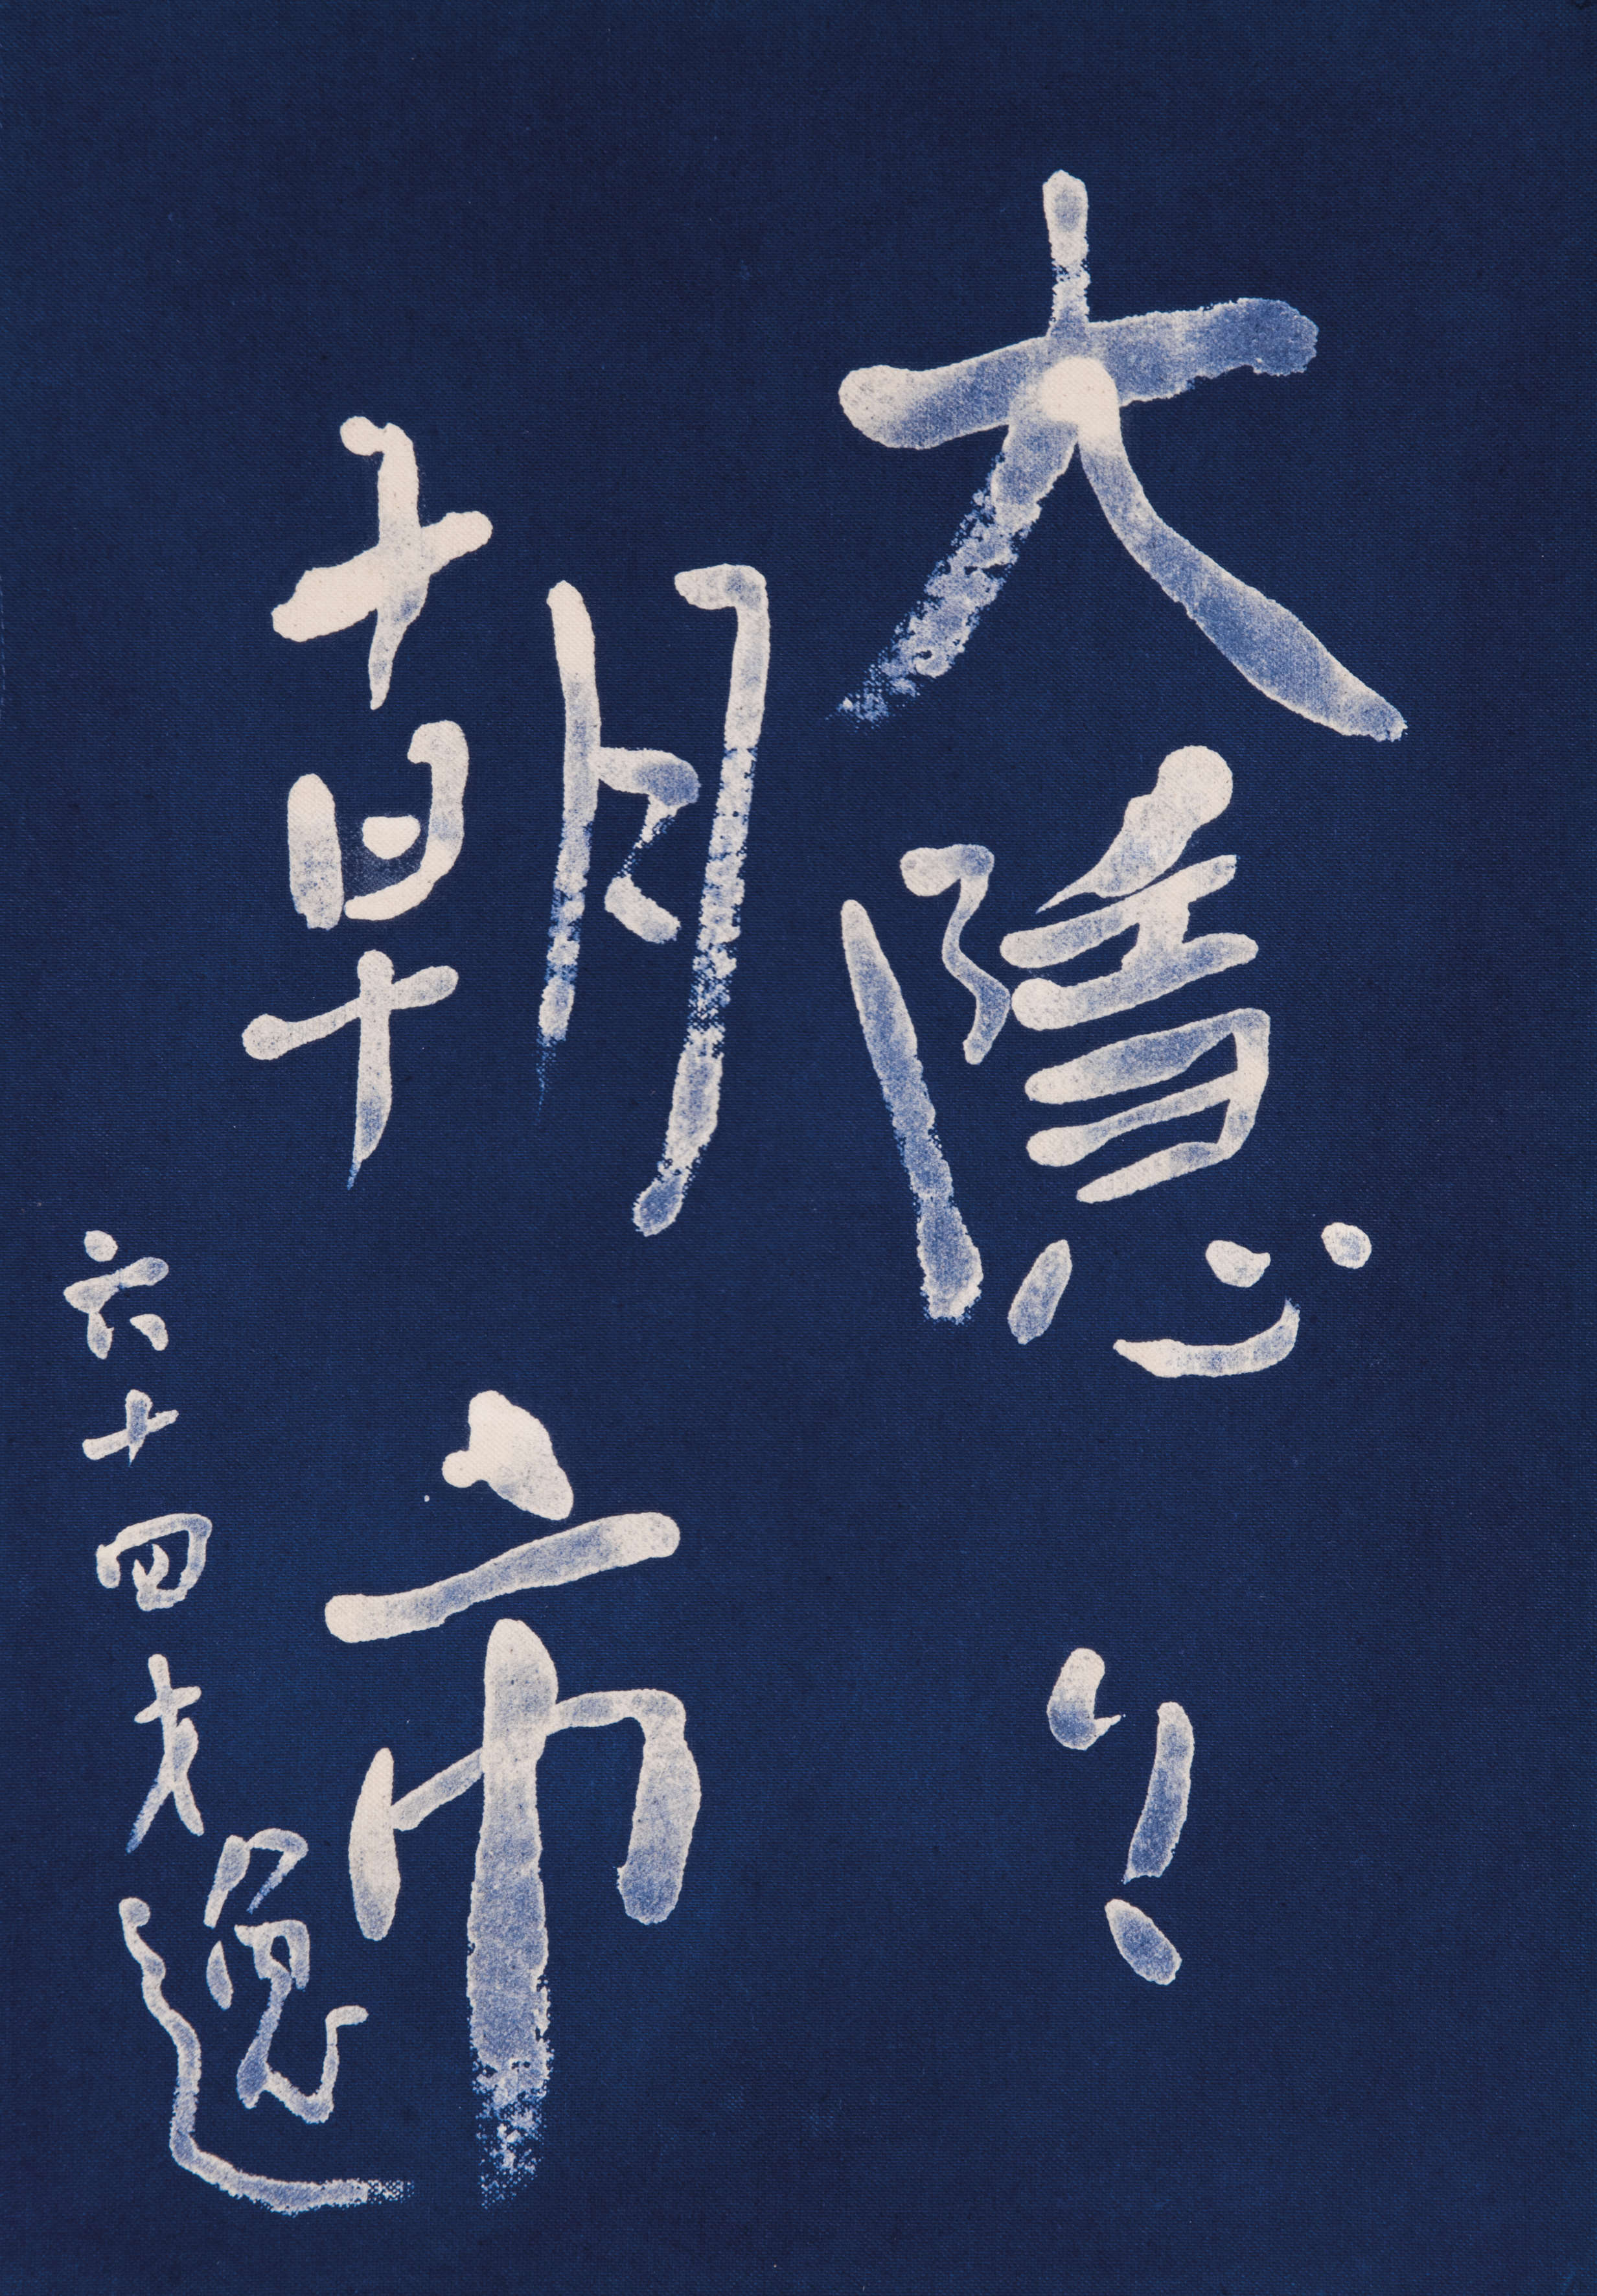 大隱
朝市
六十四才逸